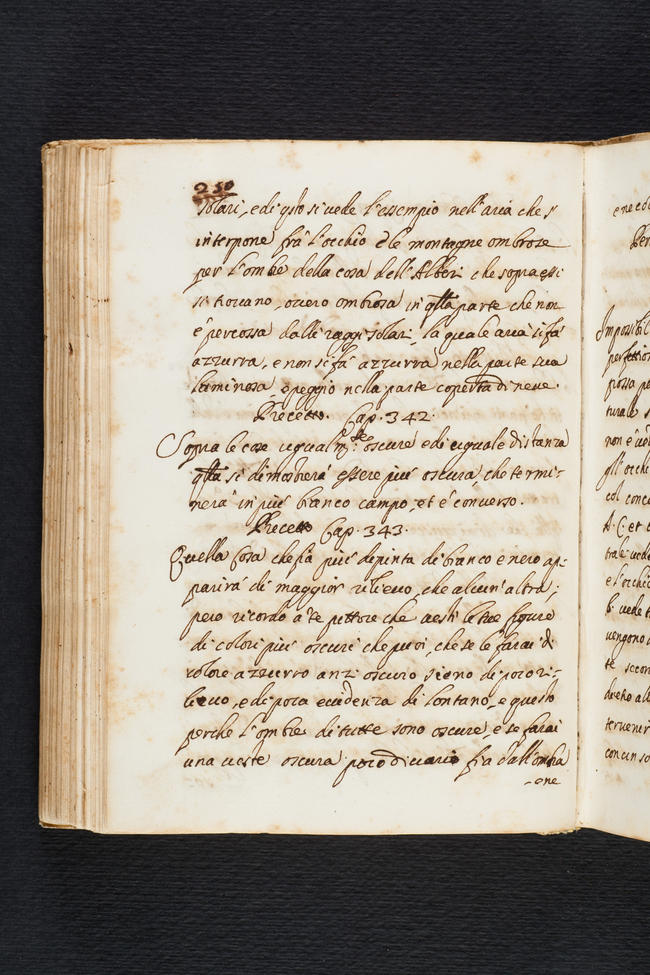 250
solari, e di qsto si vede l'essempio nell'aria che s'
interpone frà l'occhio e le montagne ombrose
per l'ombre della cosa dell'Alberi che sopra essi
si trovano, overo ombrosa in qlla parte che non
è percossa dalli raggi solari, la quale aria si fà
azzurra, e non si fà azzurra nella parte sua
luminosa, e peggio nella parte coperta di neve.
Precetto. Cap. 342.
Sopra le cose ugualmte oscure e di uguale distanza
qlla si dimostrerà essere più oscura che termi-
nerà in più bianco campo, et è converso.
Precetto Cap. 343.
Quella cosa che sia più depinta di bianco e nero ap-
parirà di maggior rilievo, che alcun'altra;
pero ricordo a te pittore che vesti le tue figure
di colori più oscuri che puoi, che se le farai di
colore azzurro anzi oscuro sieno di poco ri-
lievo, e di poca evidenza di lontano, e questo
perche l'ombre di tutte sono oscure, e se farai
una veste oscura poco divario fra dall'ombra
-one
e ne co
Per
Impossibil
perfettion
possa pe
turale s
non è ved
gli occhi
col conc
A. C. et
trali ved
e l'occhio
b. vede t
vengono
te secon
dreto all
tervenir
con un so